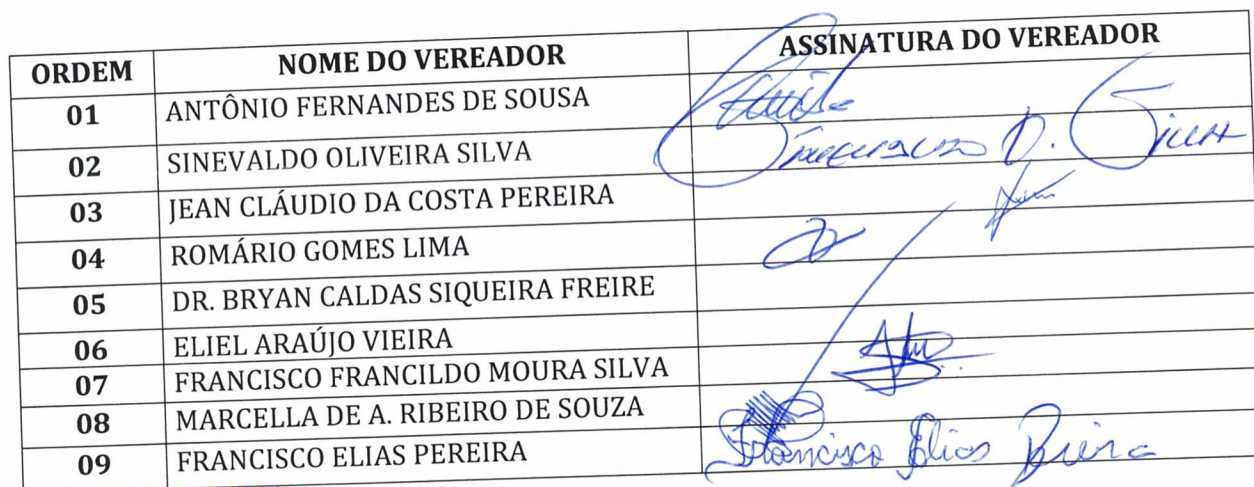 ORDEM NOME DO VEREADOR ASSINATURA DO VEREADOR
01 ANTÔNIO FERNANDES DE SOUSA
02 SINEVALDO OLIVEIRA SILVA
03 JEAN CLÁUDIO DA COSTA PEREIRA
04 ROMÁRIO GOMES LIMA
05 DR. BRYAN CALDAS SIQUEIRA FREIRE
06 ELIEL ARAÚJO VIEIRA
07 FRANCISCO FRANCILDO MOURA SILVA
08 MARCELLA DE A. RIBEIRO DE SOUZA
09 FRANCISCO ELIAS PEREIRA Francisco Elias